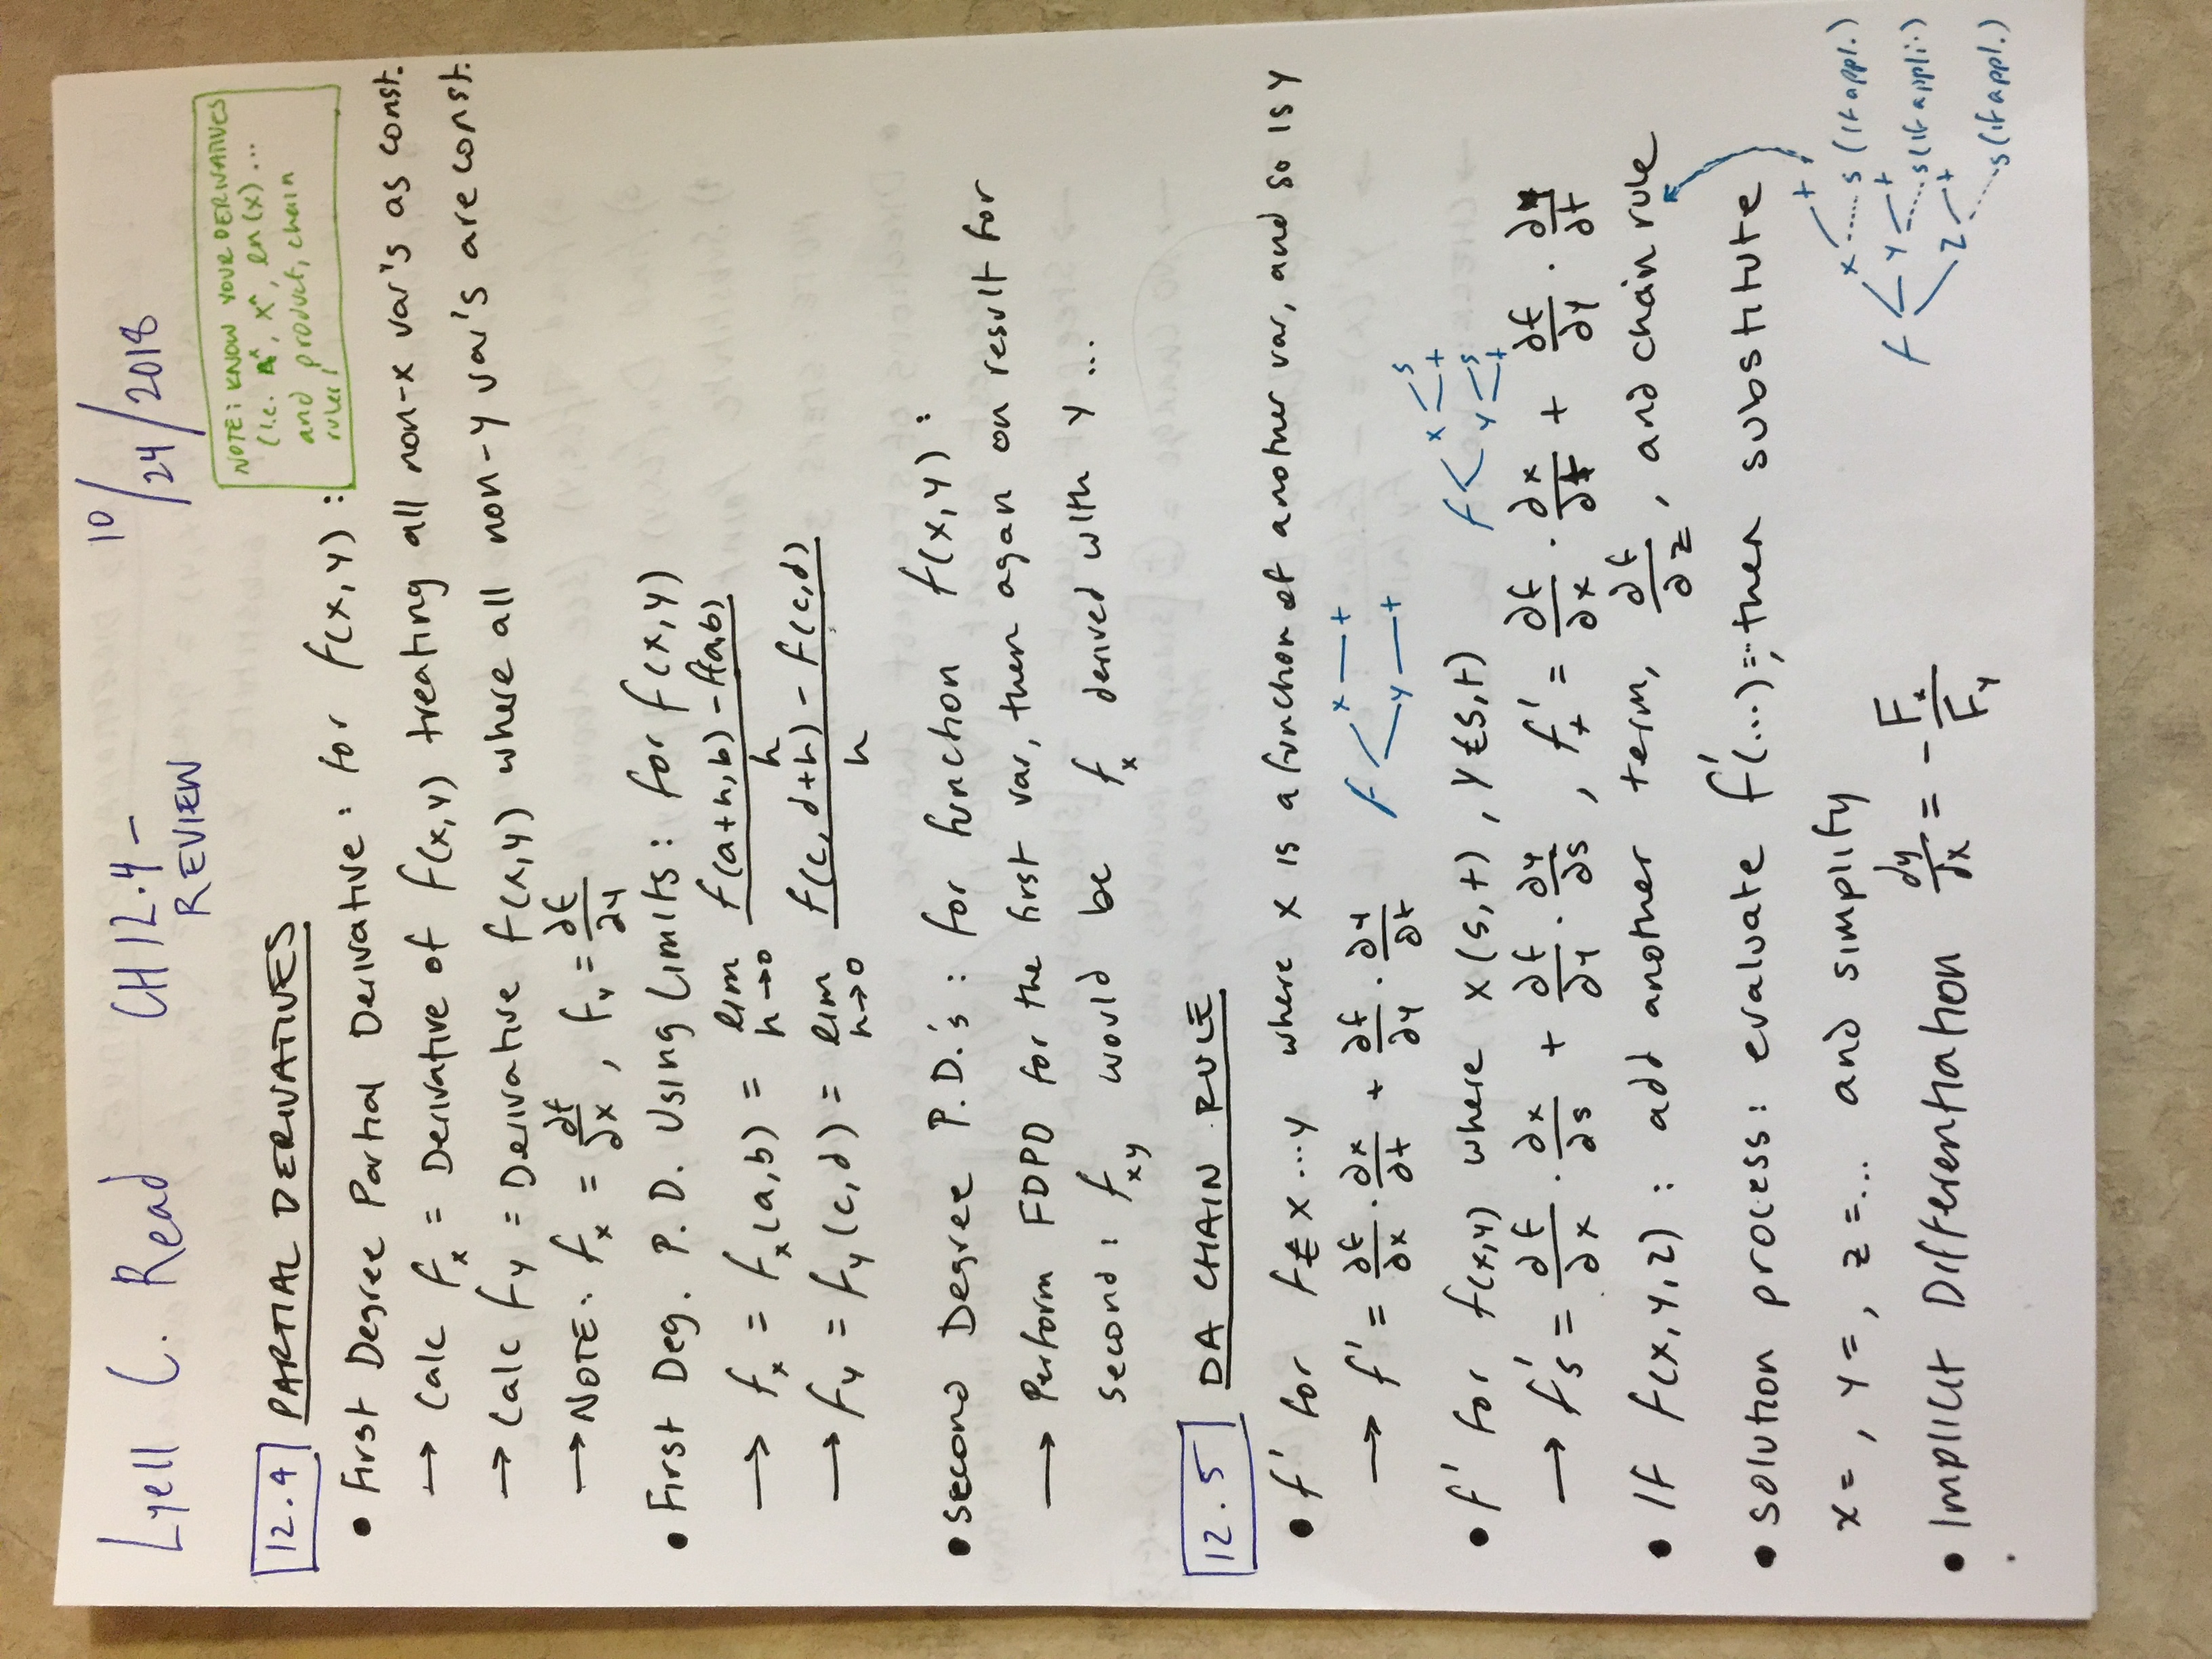 Lyell C. Read CH 12.4 – 10/24/2018
REVIEW
NOTE: KNOW YOUR DERIVATIVES
(i.e. A^x, x^n, ln(x)...
and product, chain
rules!
12.4 PARTIAL DERIVATIVES
• First Degree Partial Derivative: for f(x,y):
→ Calc f_x = Derivative of f(x,y) treating all non-x var's as const.
→ Calc f_y = Derivative f(x,y) where all non-y var's are const.
→ NOTE: f_x = ∂f/∂x, f_y = ∂f/∂y
• First Deg. P.D. Using Limits: for f(x,y)
→ f_x = f_x(a,b) = lim h→0 (f(a+h,b) - f(a,b))/h
→ f_y = f_y(c,d) = lim h→0 (f(c,d+h) - f(c,d))/h
• Second Degree P.D.'s: for function f(x,y):
→ Perform FDPD for the first var, then again on result for
second: f_xy would be f_x derived with y...
12.5 DA CHAIN RULE
• f' for f x...y where x is a function of another var, and so is y
→ f' = ∂f/∂x · ∂x/∂t + ∂f/∂y · ∂y/∂t f x t
y t
• f' for f(x,y) where x(s,t), y(s,t) f x s t
y s t
→ f'_s = ∂f/∂x · ∂x/∂s + ∂f/∂y · ∂y/∂s, f'_t = ∂f/∂x · ∂x/∂t + ∂f/∂y · ∂y/∂t
• If f(x,y,z): add another term, ∂f/∂z, and chain rule
• solution process: evaluate f'(...)=; then substitute
x=, y=, z=... and simplify
• Implicit Differentiation dy/dx = -F_x/F_y
t
x s (if appl.)
f y t
s (if appli.)
z t
s (if appl.)